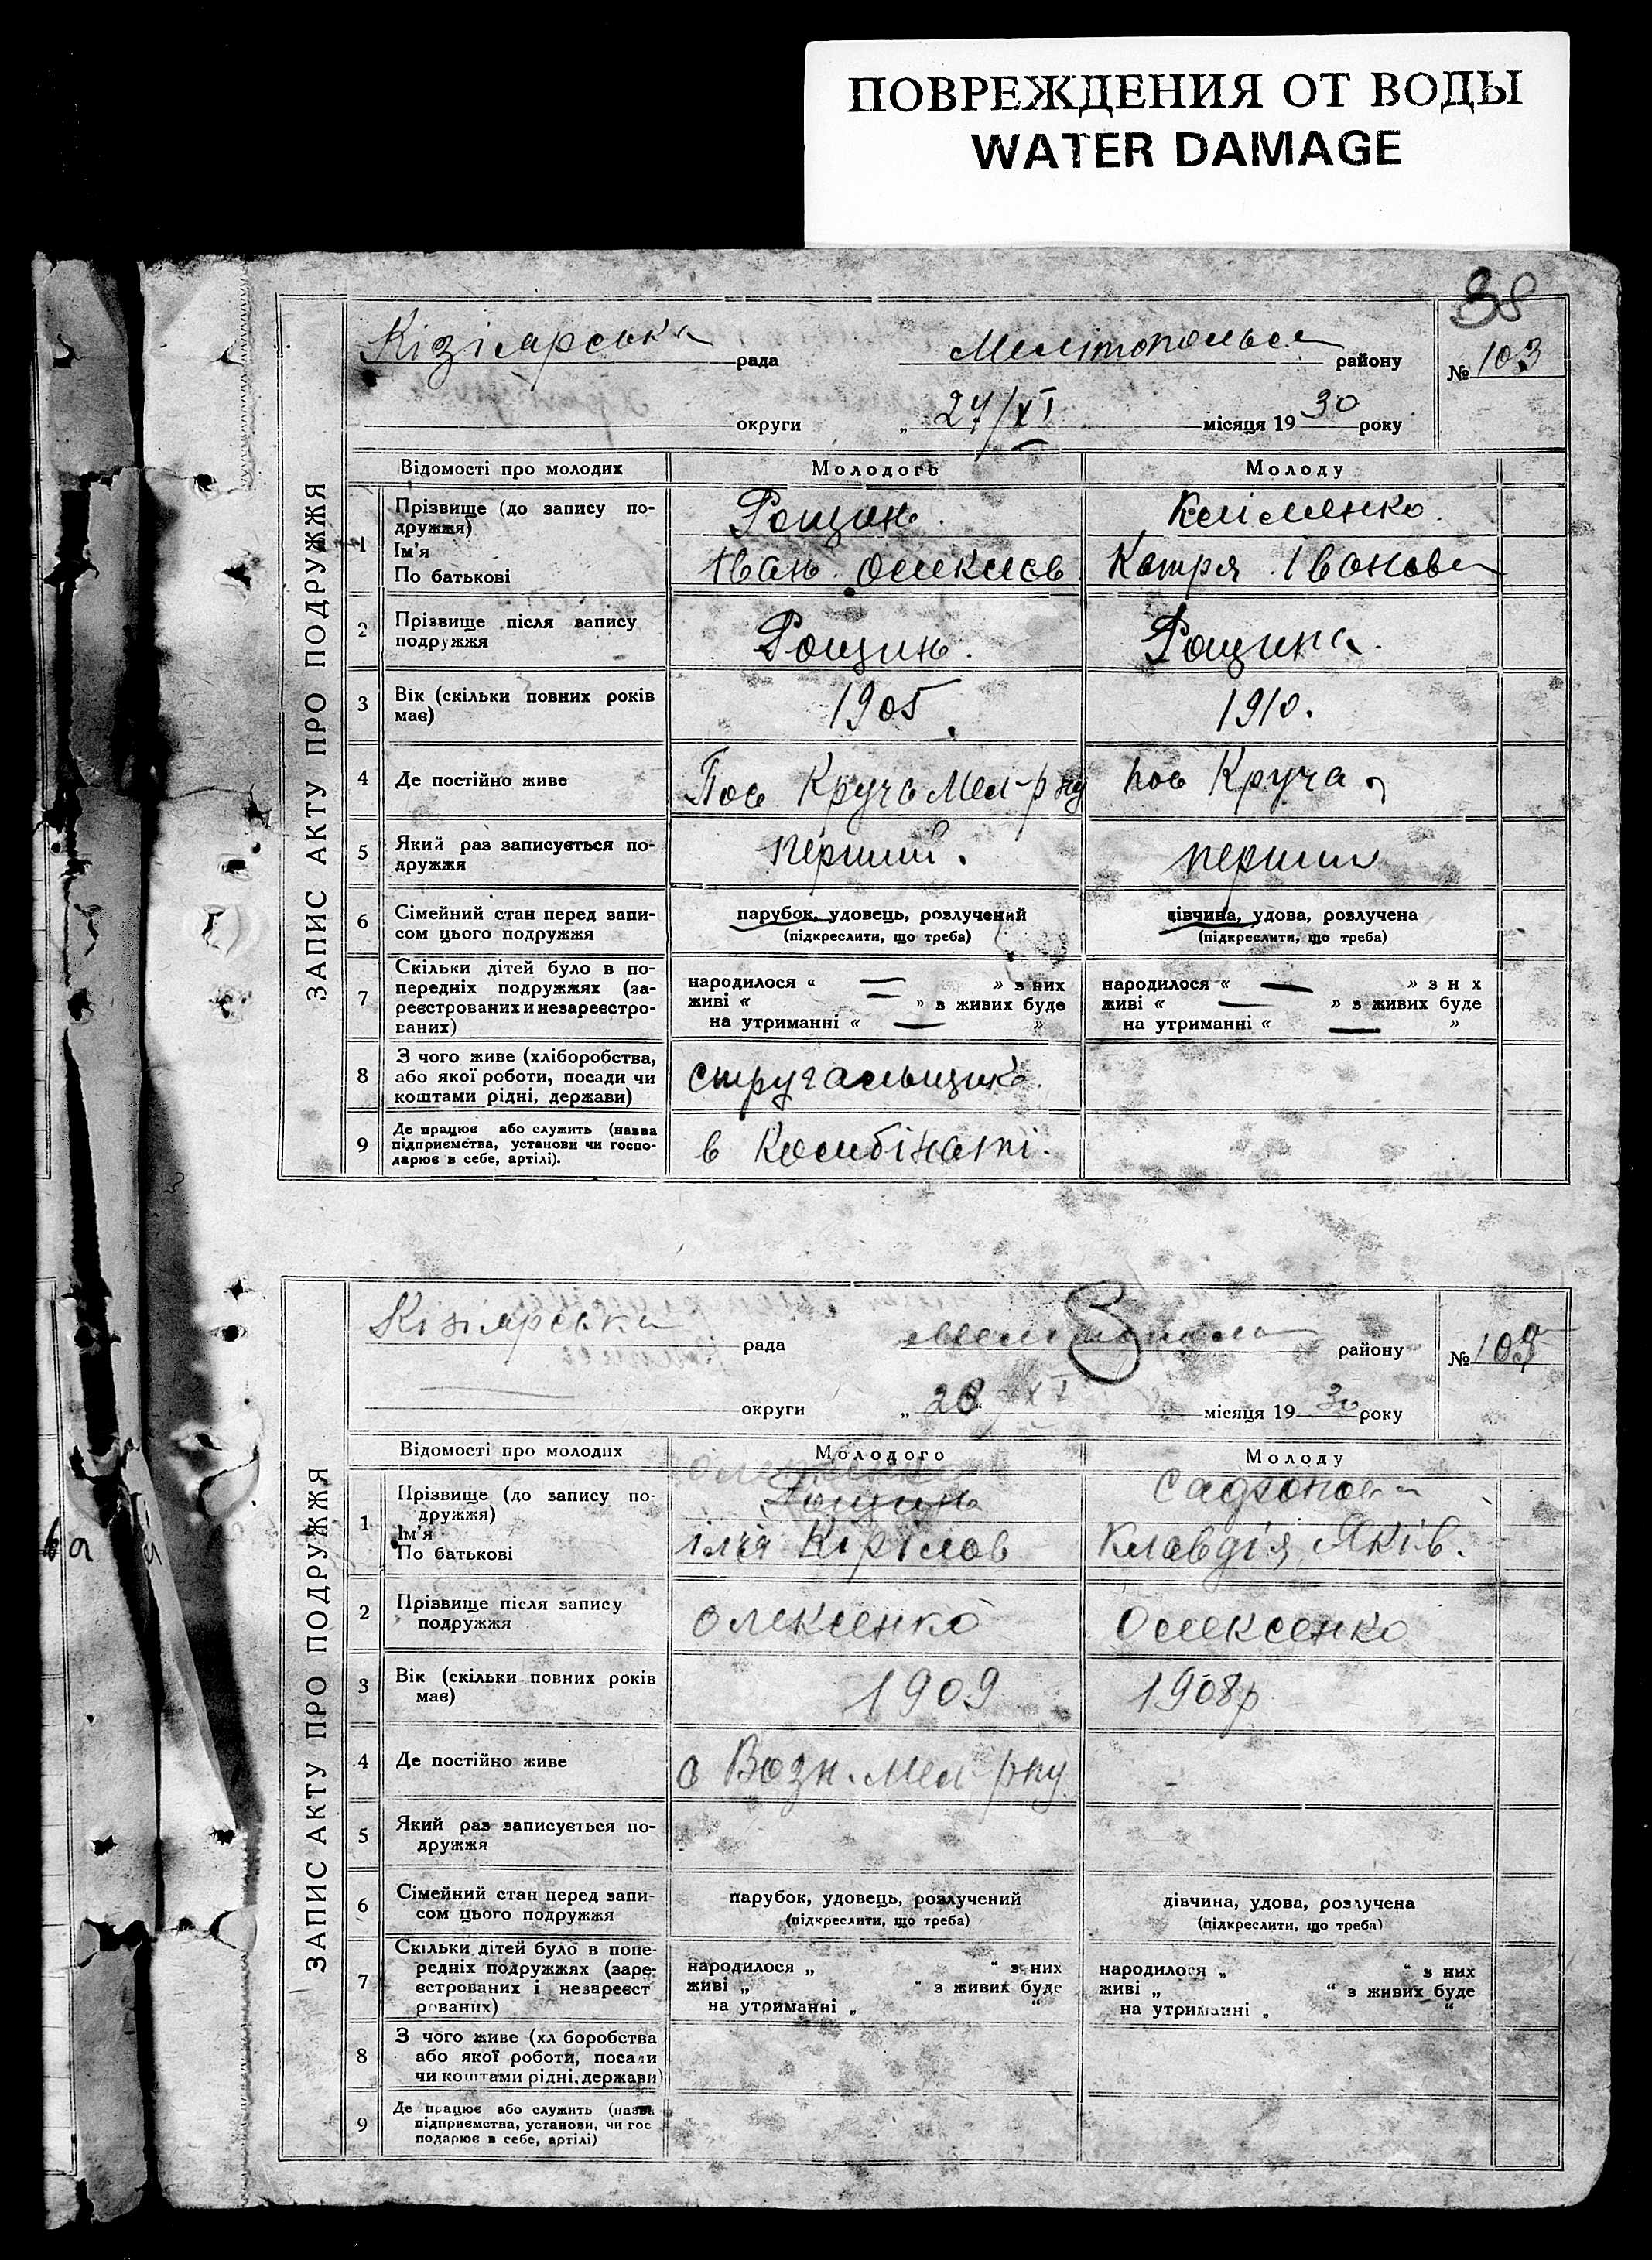 ПОВРЕЖДЕНИЯ ОТ ВОДЫ
WATER DAMAGE
38
ЗАПИС АКТУ ПРО ПОДРУЖЖЯ
Кізіярська рада Мелітопольск району № 103
округи „ 27/XI місяця 1930 року
Відомості про молодих Молодого Молоду
1 Прізвище (до запису по-
дружжя) Рощин. Кліменко.
Ім'я
По батькові Іван Олексієв Катря Іванова
2 Прізвище після запису
подружжя Рощин. Рощина.
3 Вік (скільки повних років
має) 1905 1910.
4 Де постійно живе Пос Круча Мел-р ну пос Круча
5 Який раз записується по-
дружжя перший. перший
6 Сімейний стан перед запи-
сом цього подружжя
парубок, удовець, розлучений
(підкреслити, що треба)
дівчина, удова, розлучена
(підкреслити, що треба)
7 Скільки дітей було в по-
передніх подружжях (за-
реєстрованих и незареєстро-
ваних)
народилося « — » з них
живі « — » з живих буде
на утриманні « — »
народилося « — » з н х
живі « — » з живих буде
на утриманні « — »
8 З чого живе (хліборобства,
або якої роботи, посади чи
коштами рідні, держави) стругальщик.
9 Де працює або служить (назва
підприємства, установи чи госпо-
дарює в себе, артілі). в Комбінаті.
ЗАПИС АКТУ ПРО ПОДРУЖЖЯ
Кізіярська рада району №
округи „ 28 XI місяця 1930 року
Відомості про молодих Молодого Молоду
1 Прізвище (до запису по-
дружжя) Рощин
Ім'я
По батькові Ілія Кірілов Клавдія Яків.
2 Прізвище після запису
подружжя Олексенко Олексенко
3 Вік (скільки повних років
має) 1909 1908р
4 Де постійно живе с Возн. Мел-рну. -
5 Який раз записується по-
дружжя
6 Сімейний стан перед запи-
сом цього подружжя
парубок, удовець, розлучений
(підкреслити, що треба)
дівчина, удова, розлучена
(підкреслити, що треба)
7 Скільки дітей було в попе-
редніх подружжях (заре-
єстрованих і незареєст
рованих)
народилося „ “ з них
живі „ “ з живих буде
на утриманні „ “
народилося „ “ з них
живі „ “ з живих буде
на утриманні „ “
8 З чого живе (хл боробства
або якої роботи, посади
чи коштами рідні, держави)
9 Де працює або служить (назва
підприємства, установи, чи гос
подарює в себе, артілі)